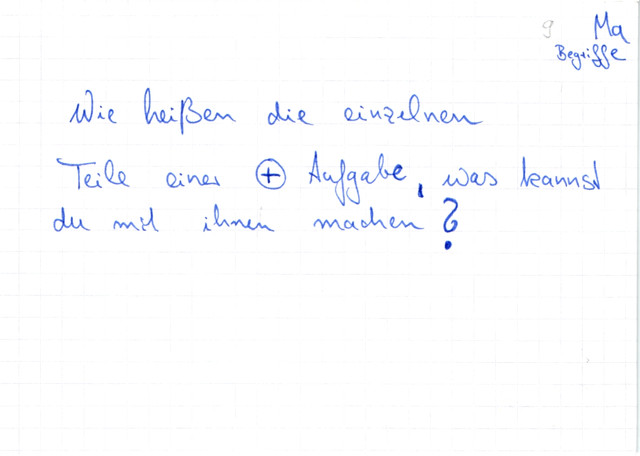 9 Ma
Begriffe
Wie heißen die einzelnen
Teile einer ⊕ Aufgabe, was kannst
du mit ihnen machen?